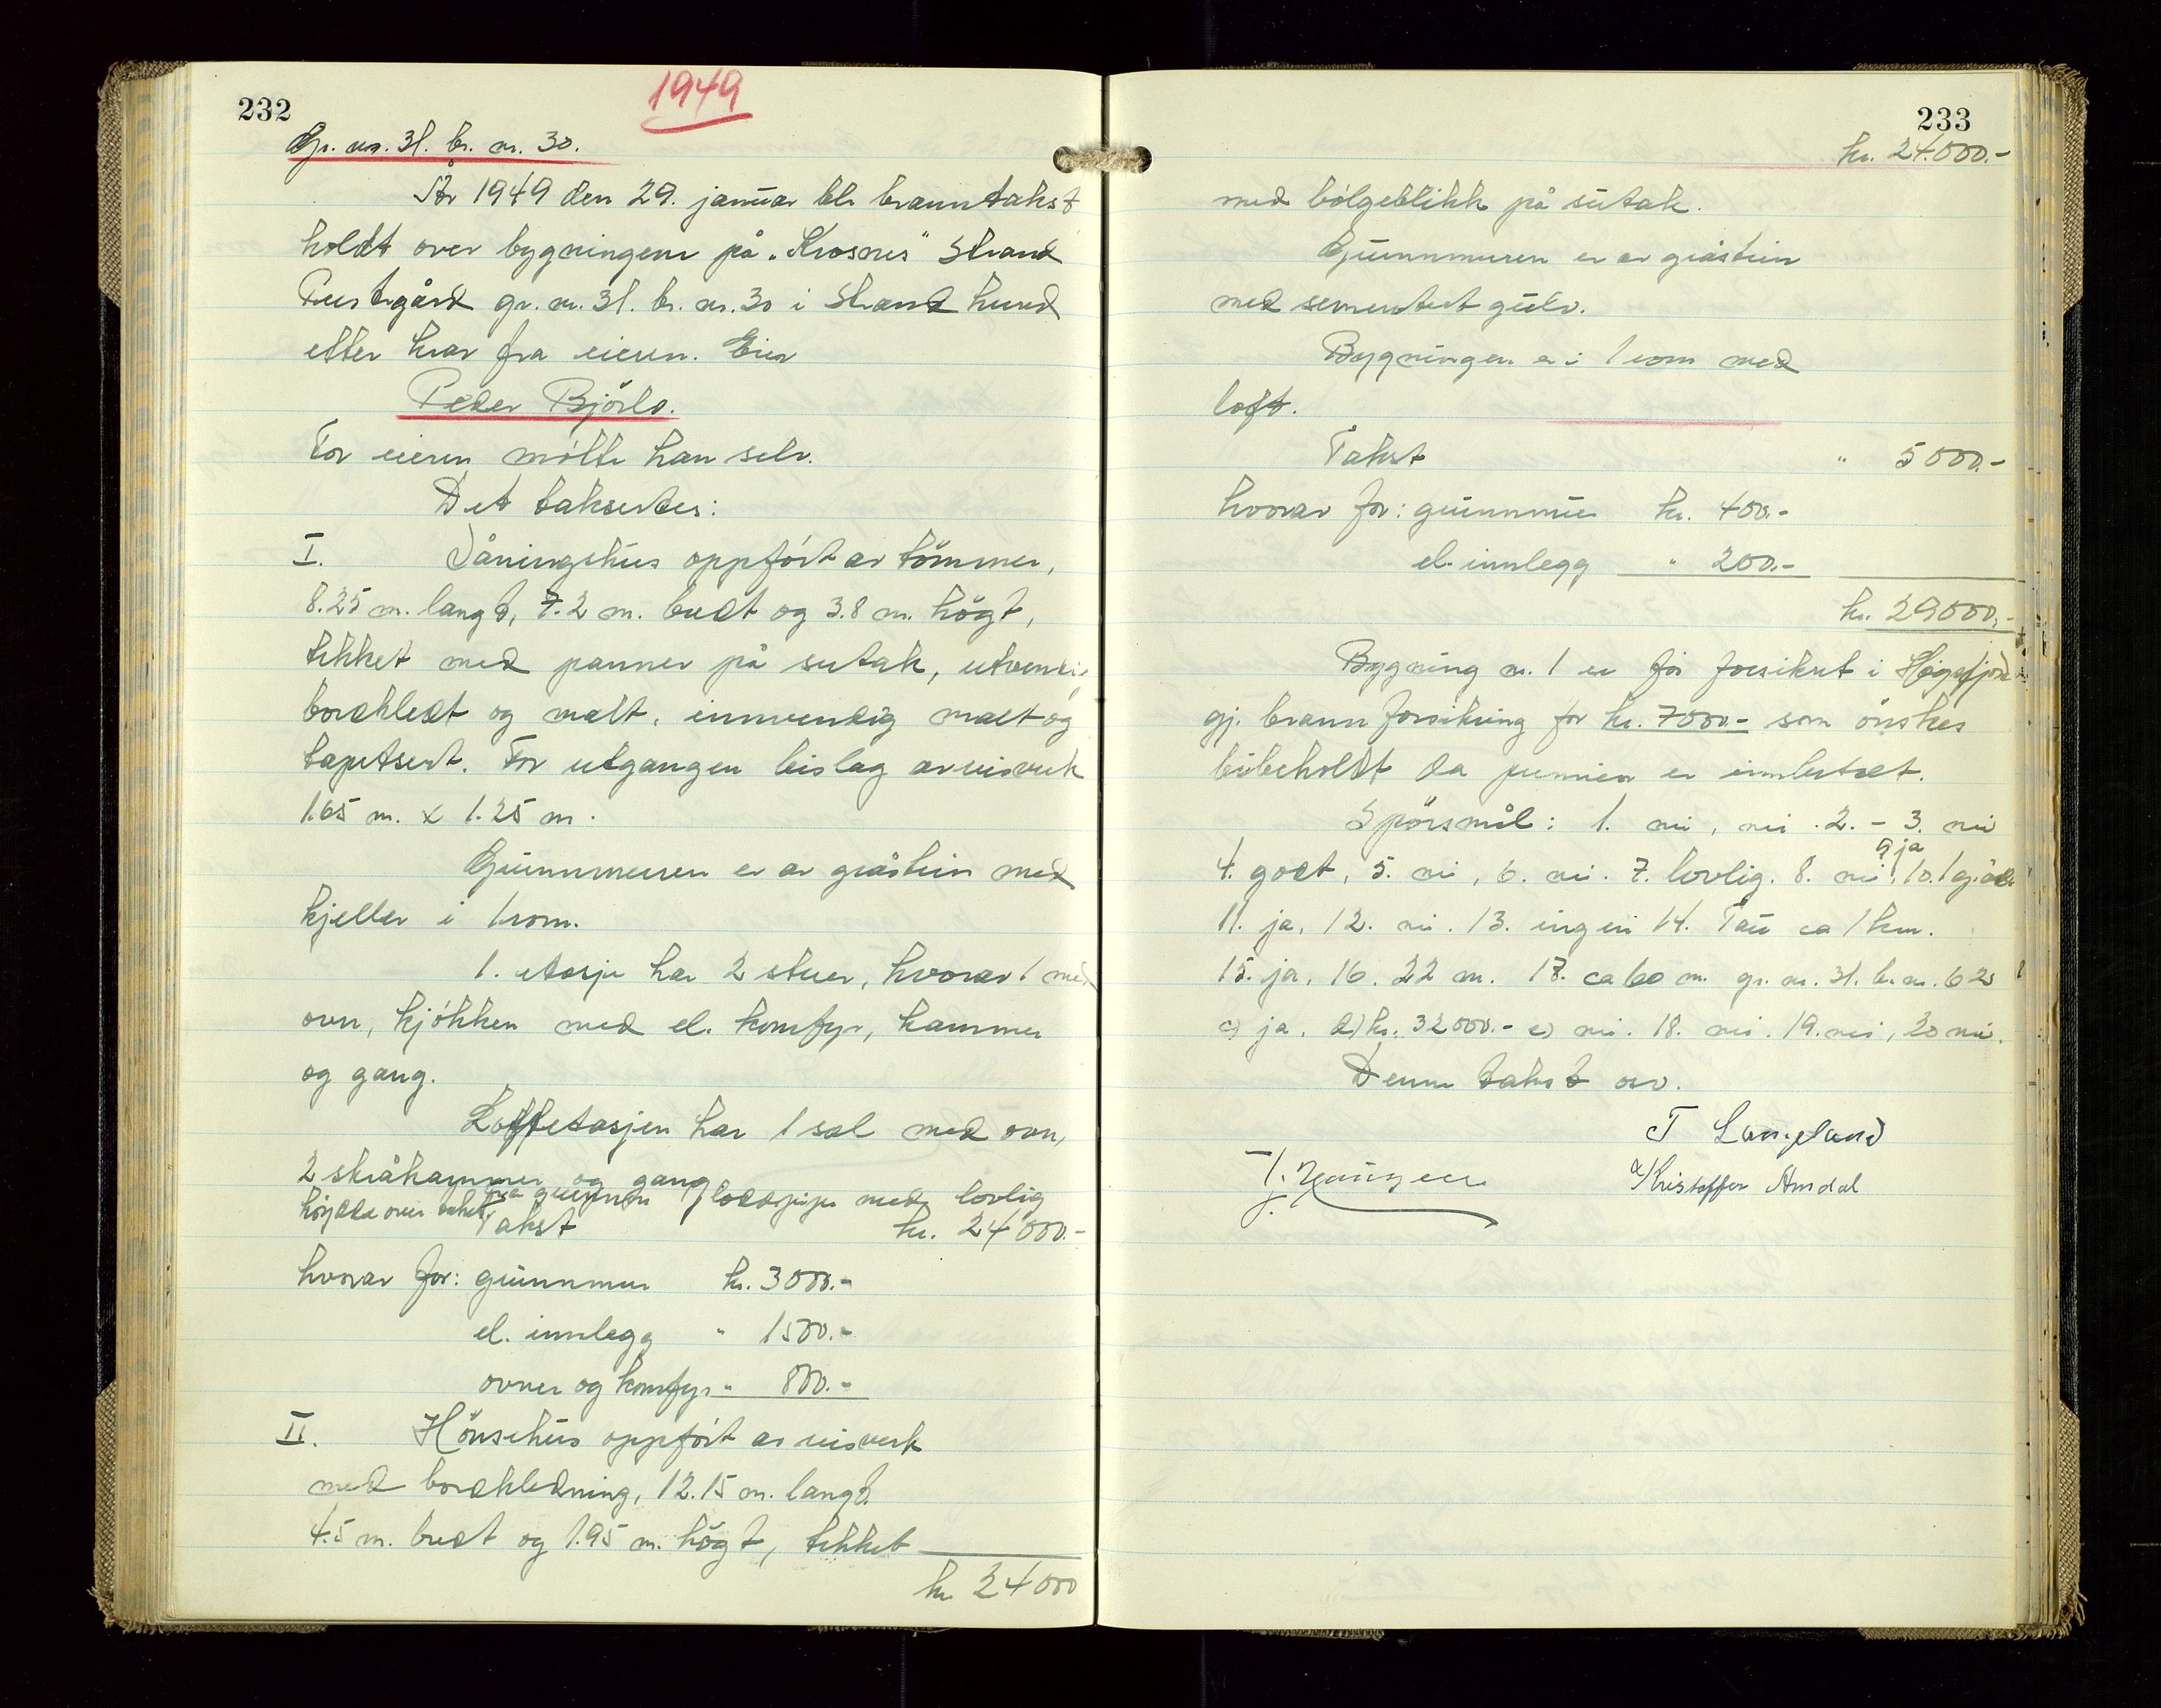 232
1949
Gr. nr. 31. br. nr. 30.
År 1949 den 29. januar ble branntakst
holdt over bygningene på "Krosnes" Strand
Prestegård gr. nr. 31. br. nr. 30 i Strand herred
etter krav fra eieren. Eier
Peder Bjørlo.
For eieren møtte han selv.
Det taksertes:
I. Våningshus oppført av tömmer,
8.25 m. langt, 7.2 m. bredt og 3.8 m. högt,
tekket med panner på sutak, utvendig
bordkledt og malt, innvendig malt og
tapetsert. For utgangen bislag av reisverk
1.65 m. x 1.25 m.
Grunnmuren er av gråstein med
kjeller i 1 rom.
1. etasje har 2 stuer, hvorav 1 med
ovn, kjøkken med el. komfyr, kammer
og gang.
Loftetasjen har 1 sal med ovn,
2 skråkammer og gang
fra grunnen 1 loddpipe med lovlig
höyde over taket.
Takst kr. 24 000.-
hvorav for: grunnmur kr. 3000.-
el. innlegg " 1500.-
ovner og komfyr " 800.-
II. Hönsehus oppført av reisverk
med bordkledning, 12.15 m. langt.
4.5 m. bredt og 1.95 m. högt, tekket
kr 24 000
233
kr. 24.000.-
med bølgeblikk på sutak.
Grunnmuren er av gråstein
med sementert gulv.
Bygningen er i 1 rom med
loft.
Takst " 5000.-
hvorav for: grunnmur kr. 400.-
el. innlegg " 200.-
kr. 29000.-
Bygning nr. 1 er før forsikret i Høgsfjord
gj. brannforsikring for kr. 7000.- som ønskes
bibeholdt da premien er innbetalt.
Spörsmål: 1. nei, nei. 2. - 3. nei
9 ja
4. godt, 5. nei, 6. nei. 7. lovlig. 8. nei, 10. 1 gj.
11. ja, 12. nei. 13. ingen 14. Tau ca 1 km.
15. ja, 16. 22 m. 17. ca 60 m. gr. nr. 31. br. nr. 6 2)
c) ja, d) kr. 32000.- e) nei. 18. nei. 19. nei, 20 nei.
Denne takst osv.
T Langeland
Kristoffer Amdal